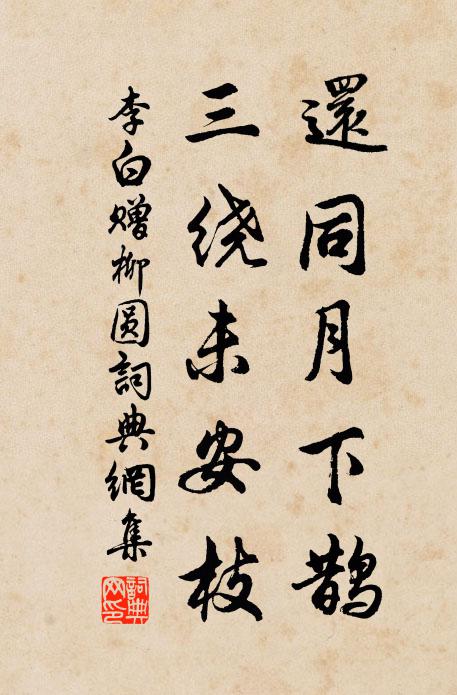 還同月下鵲
三绕未安枝
李白贈柳圆詞典網集
詞典网印